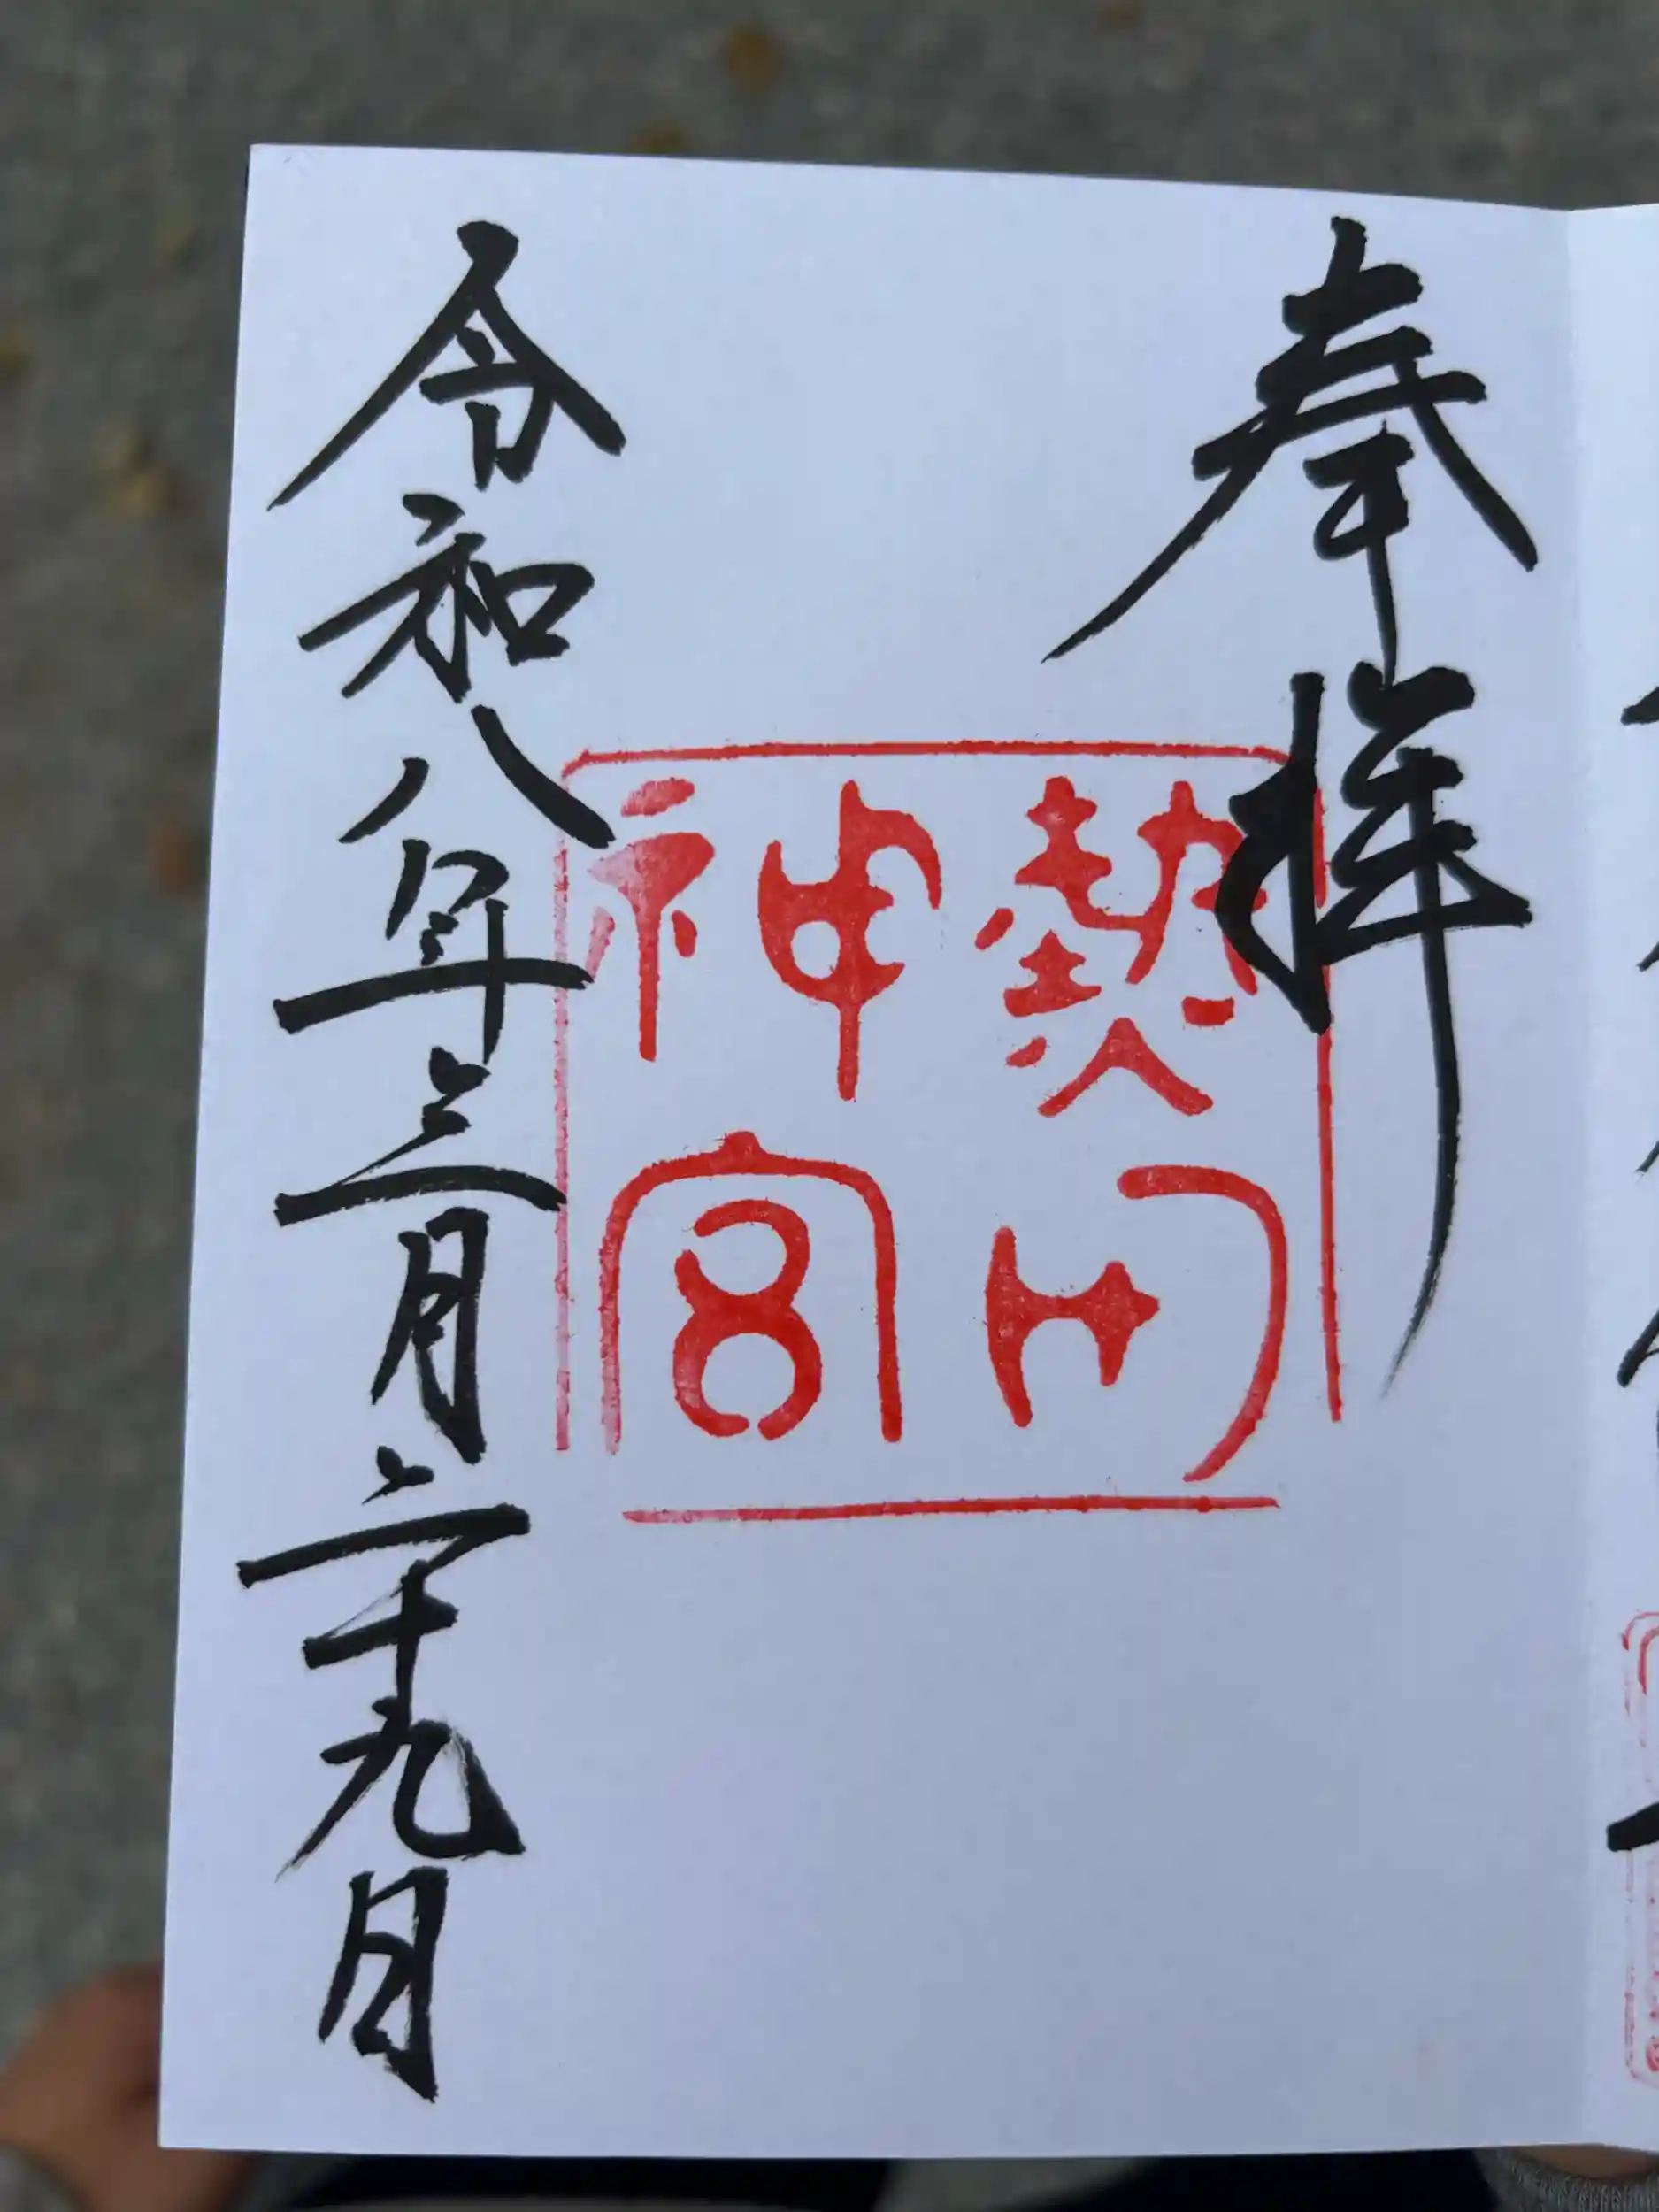 奉拝
熱田
神宮
令和八年三月二十九日